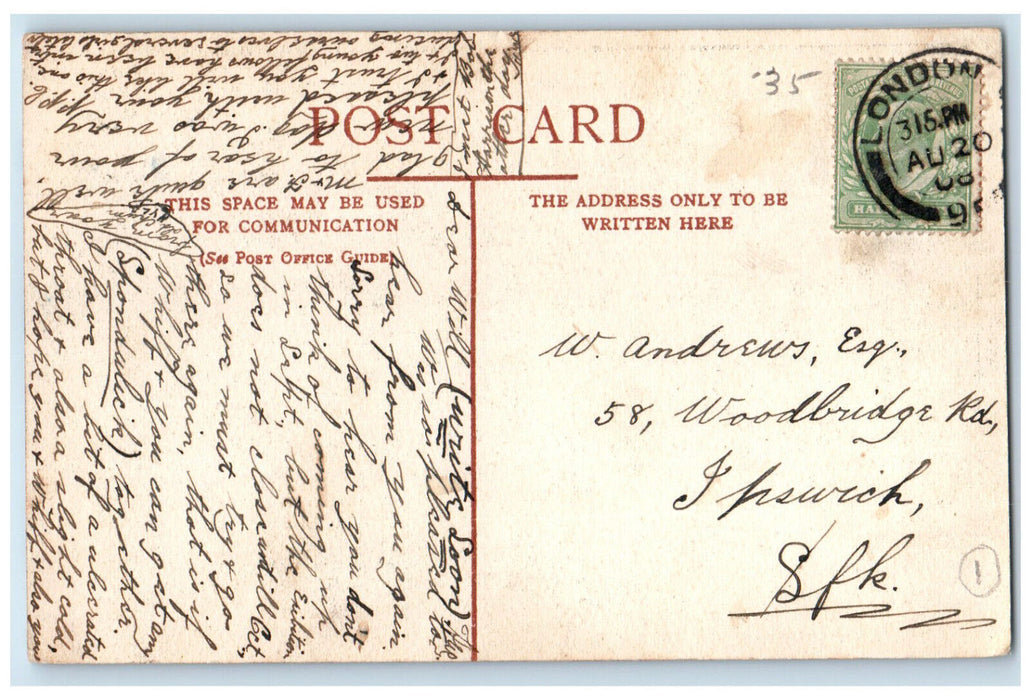 POST CARD
THIS SPACE MAY BE USED
FOR COMMUNICATION
(See Post Office Guide)
THE ADDRESS ONLY TO BE
WRITTEN HERE
'35
LONDON
315.PM
AU 20
08
W. Andrews, Esq.,
58, Woodbridge Rd.,
Ipswich,
Sfk.
1
Dear Will (write soon)
We so pleased to
hear from you again.
Sorry to hear you don't
think of coming up
in Sept, but the Exibition
does not close until Oct,
so we must try & go
there again, that is if
Whift & you can get any
(Spondulick) together.
I have a bit of a ulcerated
throat & also a slight cold,
but I hope you &
are quite well,
glad to hear of your
new dog I was very
pleased with your
I trust you will like this one.
two young fellows have been